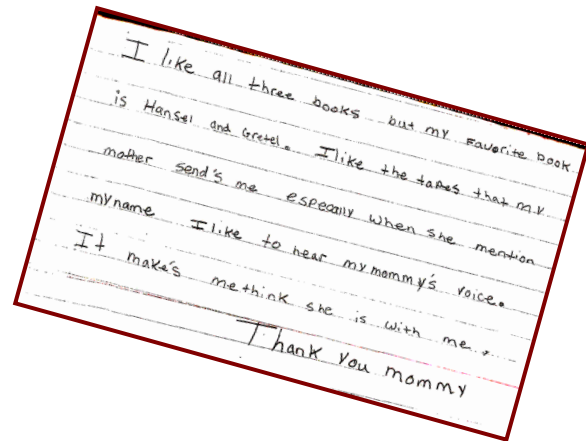 I like all three books but my Favorite book
is Hansel and Gretel. I like the tapes that my
mother send's me especally when she mention
my name I like to hear my mommy's voice.
It make's me think she is with me.
Thank you mommy